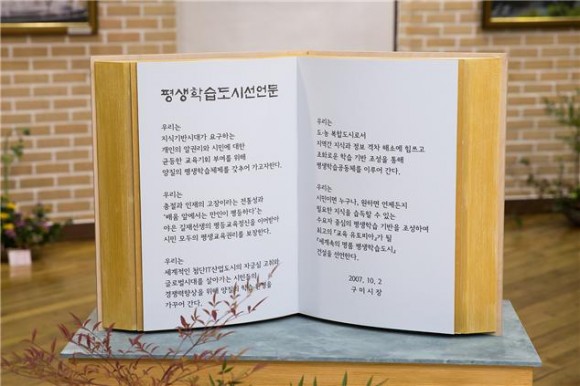 평생학습도시선언문
우리는
지식기반시대가 요구하는
개인의 알권리와 시민에 대한
균등한 교육기회 부여를 위해
양질의 평생학습체제를 갖추어 가고자한다.
우리는
충절과 인재의 고장이라는 전통성과
'배움 앞에서는 만인이 평등하다'는
야은 길재선생의 평등교육정신을 이어받아
시민 모두의 평생교육권리를 보장한다.
우리는
세계적인 첨단IT산업도시의 자긍심 고취와
글로벌시대를 살아가는 시민들의
경쟁력향상을 위해 양질의 학습
가꾸어 간다.
우리는
도·농 복합도시로서
지역간 지식과 정보 격차 해소에 힘쓰고
조화로운 학습 기반 조성을 통해
평생학습공동체를 이루어 간다.
우리는
시민이면 누구나, 원하면 언제든지
필요한 지식을 습득할 수 있는
수요자 중심의 평생학습 기반을 조성하여
최고의 『교육 유토피아』가 될
『세계속의 명품 평생학습도시』
건설을 선언한다.
2007. 10. 2
구미시장